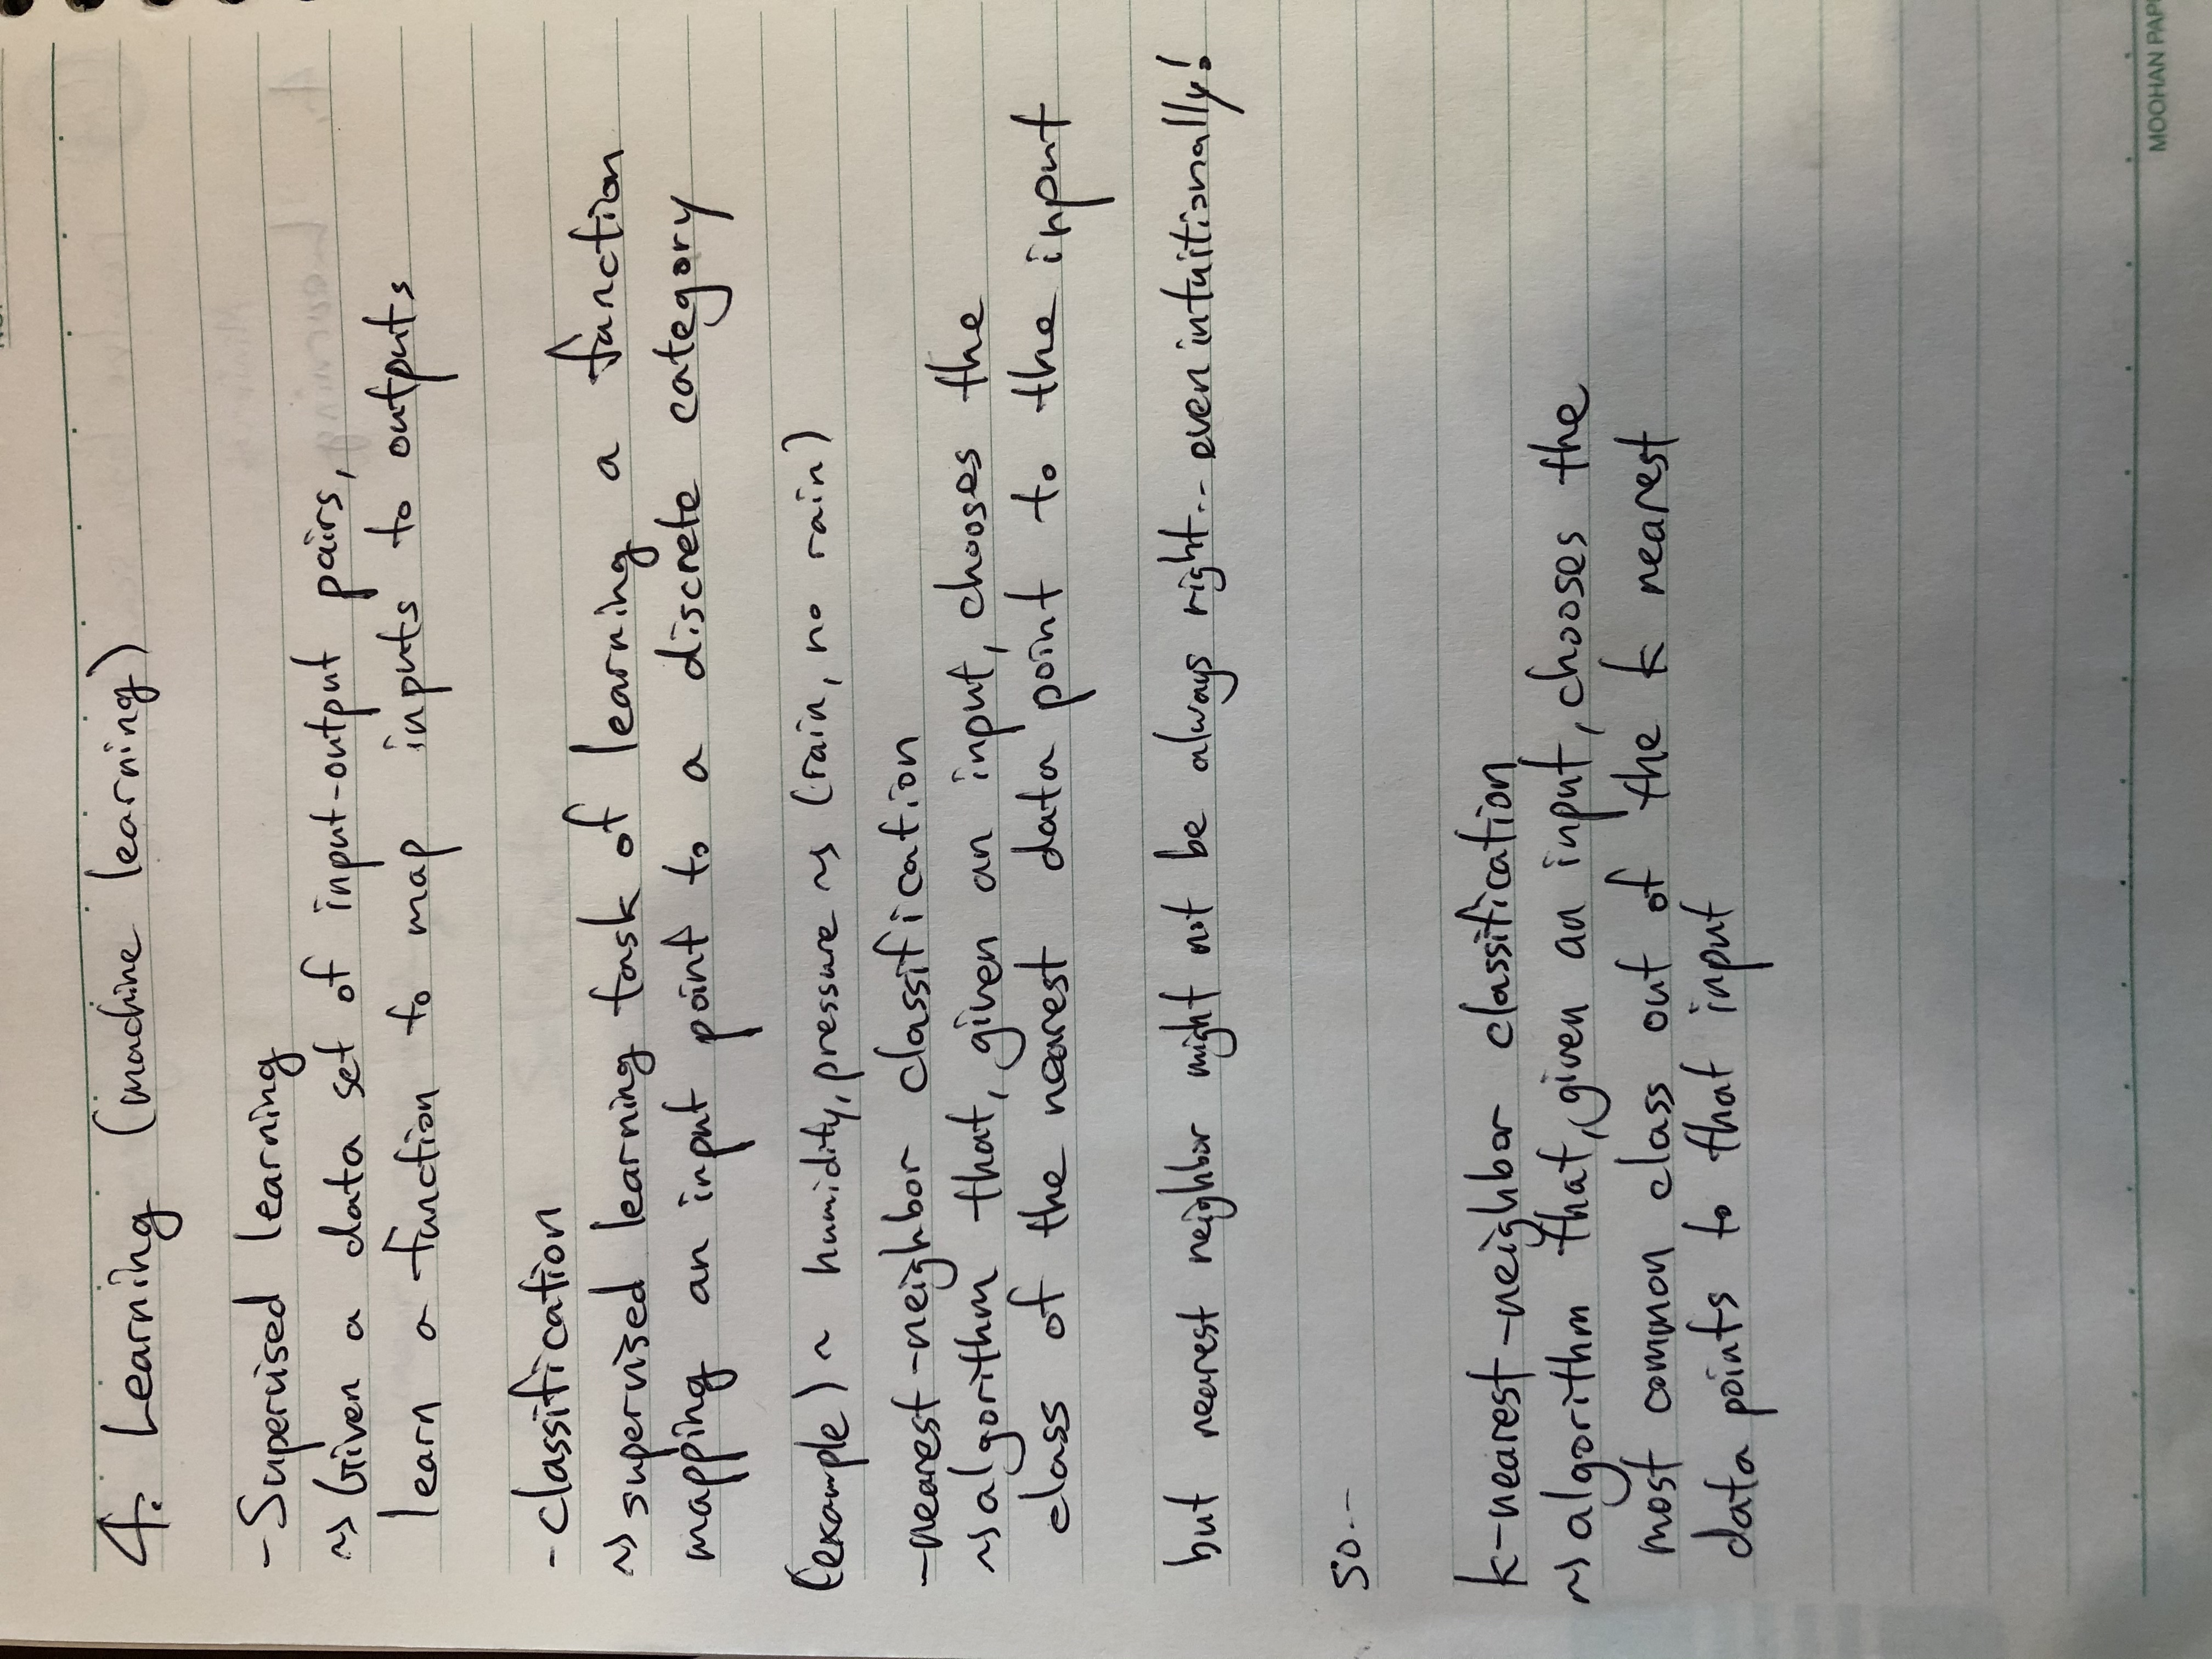 4. Learning (machine learning)
-Supervised learning
~> Given a data set of input-output pairs,
learn a function to map inputs to outputs
-classification
~> supervised learning task of learning a function
mapping an input point to a discrete category
(example) ~ humidity, pressure ~> (rain, no rain)
-nearest-neighbor classification
~> algorithm that, given an input, chooses the
class of the nearest data point to the input
but nearest neighbor might not be always right... even intuitionally!
so...
k-nearest-neighbor classification
~> algorithm that, given an input, chooses the
most common class out of the k nearest
data points to that input
MOOHAN PAP